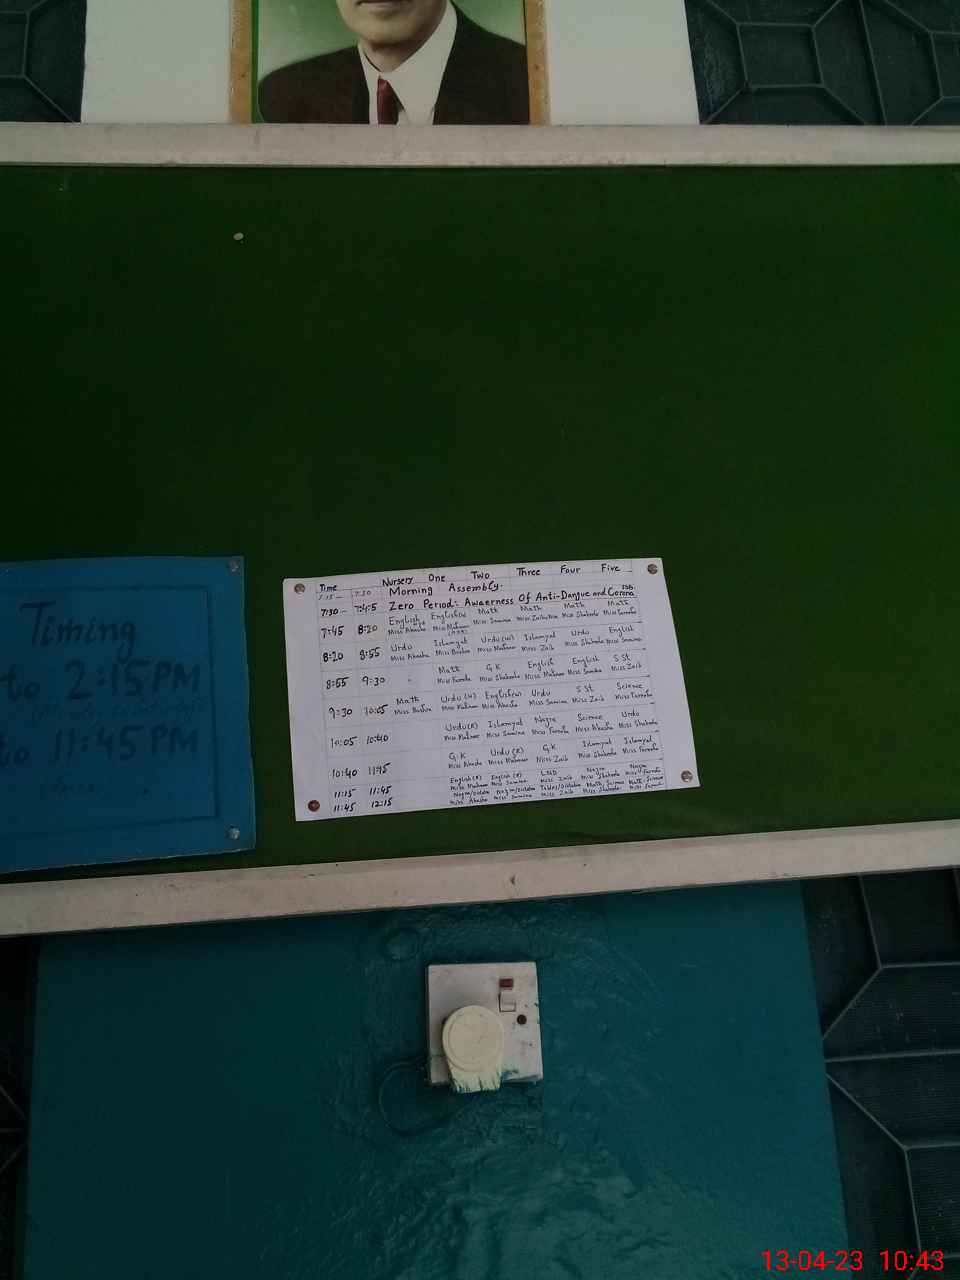 Timing
to 2:15PM
to 11:45PM
Time Nursery One Two Three Four Five
7:15 - 7:30 Morning Assembly.
7:30 - 7:45 Zero Period: Awaerness Of Anti-Dangue and Corona
7:45 8:20 English English(w) Math Math Math Math
Miss Akasha Miss Mahnoor Miss Samina Miss Shakeela Miss Farrofa
8:20 8:55 Urdu Islamyat Urdu(w) Islamyal Urdu English
Miss Akasha Miss Bushra Miss Mahnoor Miss Zaib Miss Shakeela Miss Samina
8:55 9:30 Math G.K English English S.St
Miss Farrofa Miss Shakeela Miss Mahnoor Miss Samina Miss Zaib
9:30 10:05 Math Urdu (w) English(w) Urdu S.St Science
Miss Bushra Miss Mahnoor Miss Akasha Miss Samina Miss Zaib Miss Farrofa
10:05 10:40 Urdu(R) Islamyal Nazra Science Urdu
Miss Mahnoor Miss Samina Miss Farrofa Miss Akasha Miss Shakeela
10:40 11:15 G.K Urdu (R) G.K Islamyal Islamyal
Miss Akasha Miss Mahnoor Miss Zaib Miss Shakeela Miss Farrofa
11:15 11:45 English(R) English (R) LND Nazra Nazra
Miss Mahnoor Miss Samina Miss Zaib Miss Shakeela Miss Farrofa
11:45 12:15 Math, Science Math, Science
Miss Akasha Miss Samina Miss Zaib Miss Shakeela
13-04-23 10:43